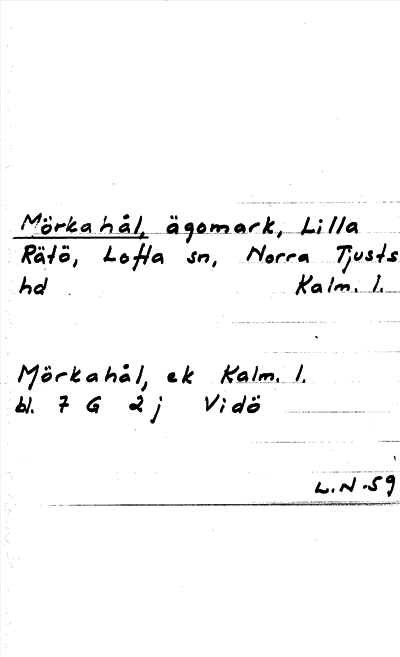 Mörkahål, ägomark, Lilla
Rätö, Lofta sn, Norra Tjusts
hd Kalm. l.
Mörkahål, ek Kalm. l.
bl. 7 G 2 j Vidö
L.N.59